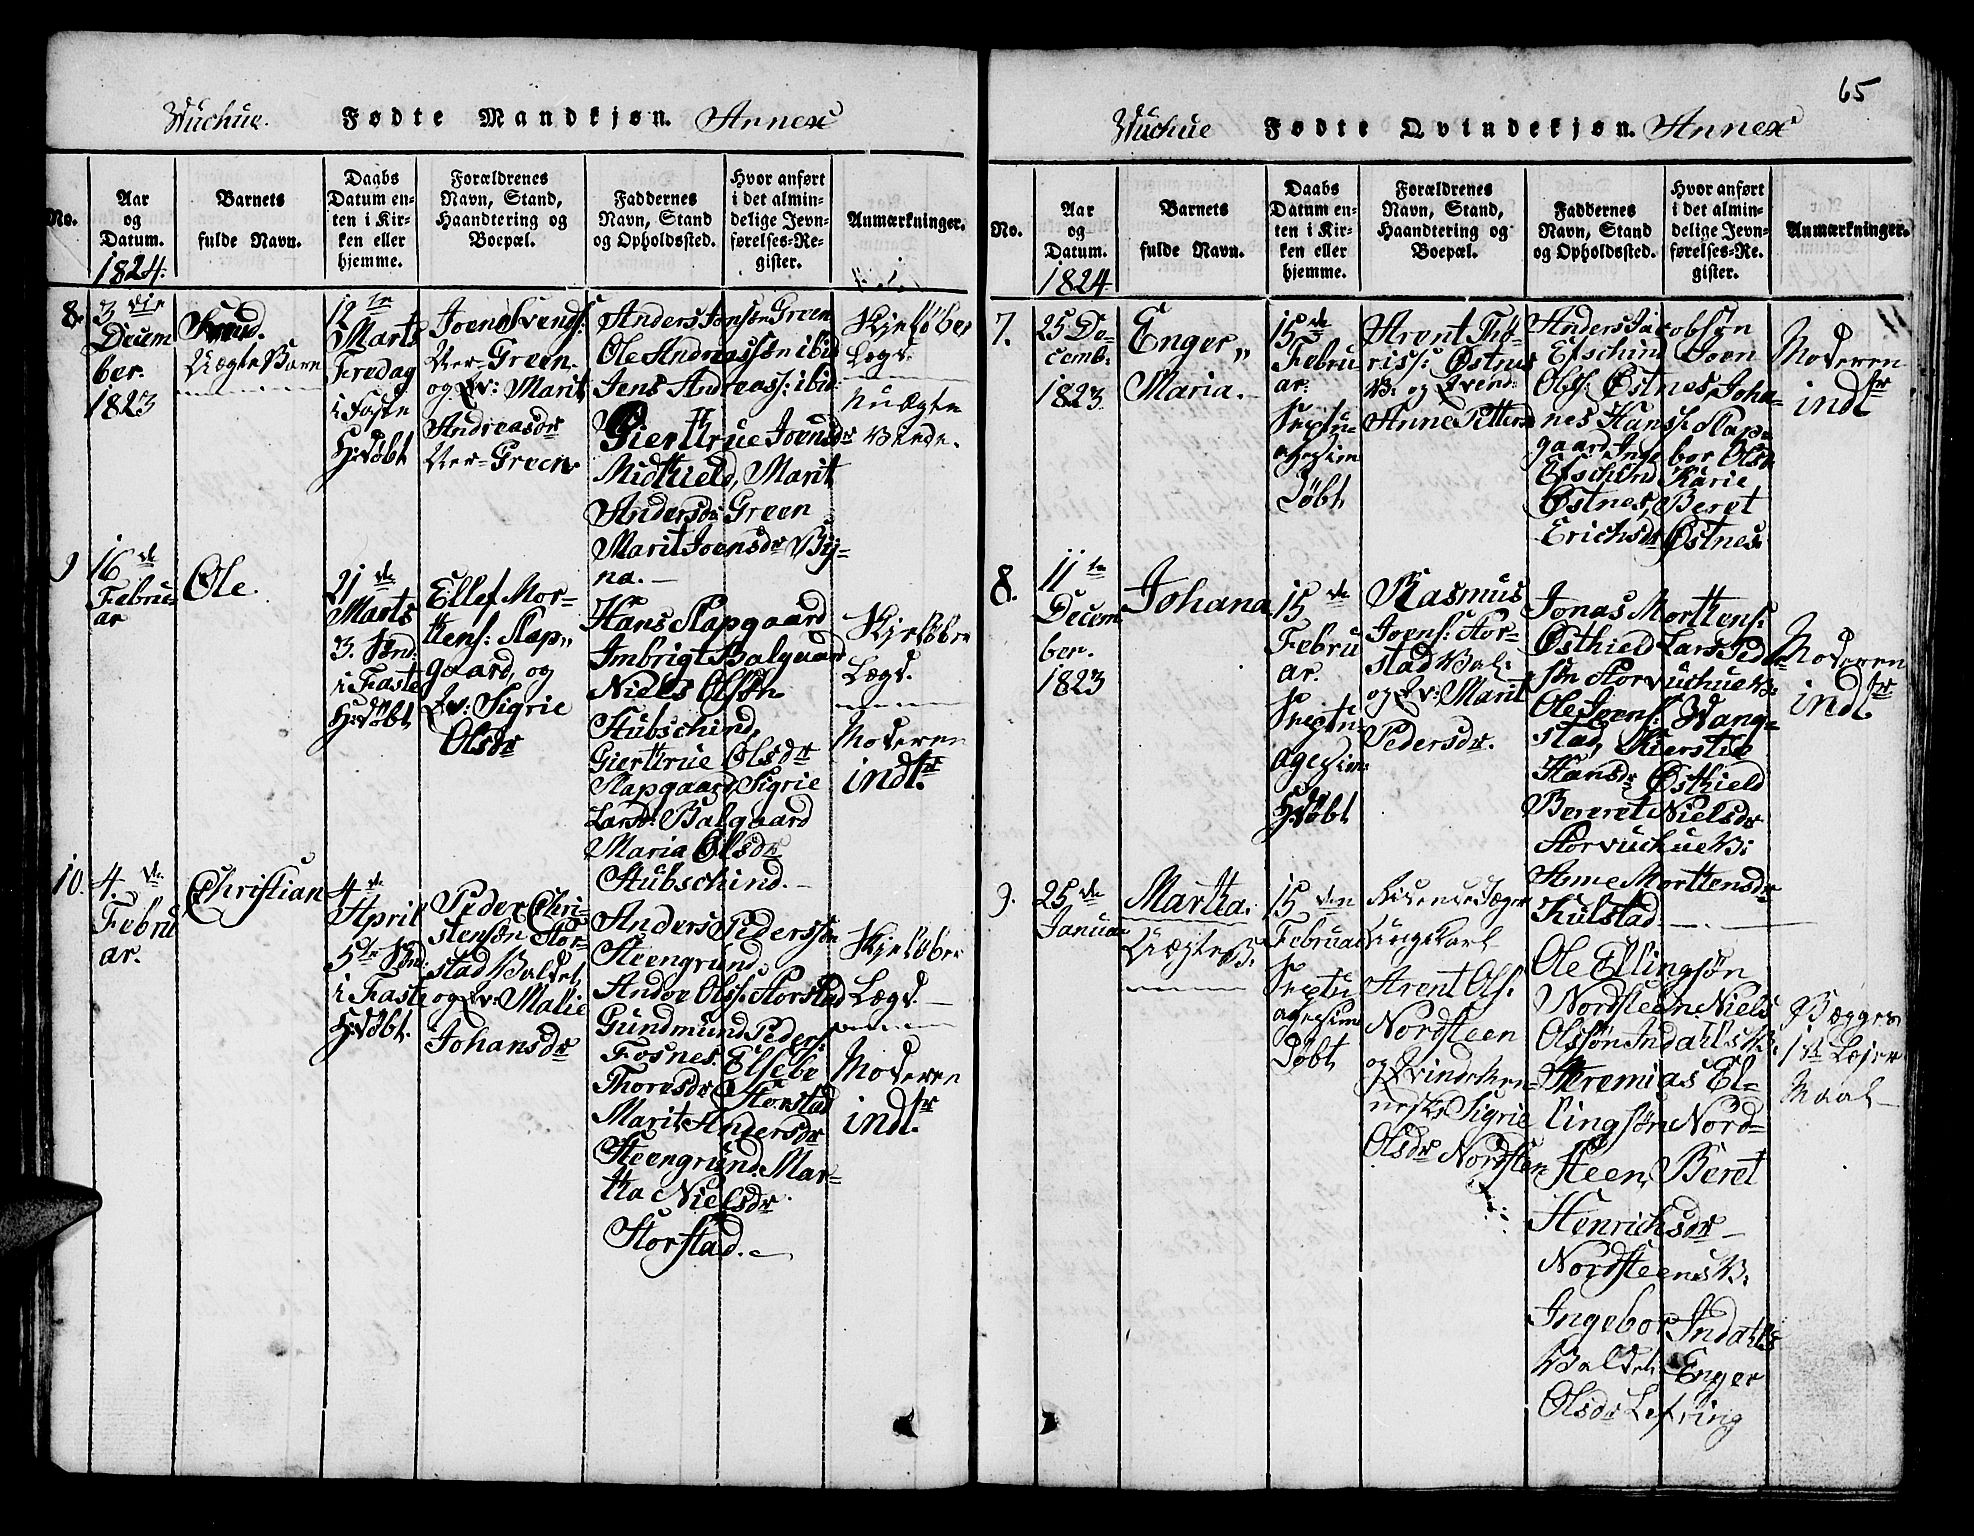 65
Wuchue. Fødte Mandkjøn. Annex
No.
Aar og Datum.
1824.
Barnets fulde Navn.
Daabs Datum enten i Kirken eller hjemme.
Forældrenes Navn, Stand, Haandtering og Boepæl.
Faddernes Navn, Stand og Opholdssted.
Hvor anført i det almindelige Jevnførelses-Register.
Anmærkninger.
8.
Decem
ber.
1823
Uægte Barn
12te
Marts
Fredag
i Faste
H: døbt
Joen Svends:
Green
og Qv: Marit
Andreasdr
Green
Anders Jonsøn Green
Ole Andreassøn ibid
Jens Andreass: ibid
Gierttrue Joensdr
Midthield, Marit
Andersdr Green
Marit Joensdr By-
na.
Lægd.
9
16de
Februe-
ar
Ole
21de
Marts
3. Sønd:
i Faste
H: døbt
Ellef Mor-
ttens: Slap-
gaard, og
Qv: Sigrie
Olsdr
Hans Slapgaard
Imbrigt Balgaard
Niels Olsøn
Stubschind,
Gierttrue Olsdr
Slapgaard, Sigrie
Larsdr Balgaard
Maria Olsdr
Stubschind.
Lægd.
Moderen
indtr.
10.
4de
Febru
ar.
Christian
4de
April
5te Sønd:
i Faste
H: døbt.
Peder Chri-
stensøn Stor-
stad
og Qv: Malie
Johansdr
Anders Pederssøn
Steengrund
Andor Olss: Storstad
Gundmund Peders:
Fosnes. Elsebe
Thoresdr Storstad
Marit Andersdr
Steengrund. Mar-
tha Nielsdr
Storstad.
Lægd.
Moderen
indtr.
Wuchue Fødte Qvindekjøn. Annex
No.
Aar og Datum.
1824.
Barnets fulde Navn.
Daabs Datum enten i Kirken eller hjemme.
Forældrenes Navn, Stand, Haandtering og Boepæl.
Faddernes Navn, Stand og Opholdssted.
Hvor anført i det almindelige Jevnførelses-Register.
Anmærkninger.
7.
25 De
cemb.
1823
Enger
Maria.
15de
Febru
ar.
Septu-
agesim
Døbt
Arent Tho-
riss: Østnes
Anne Petters
Anders Jacobsøn
Efschind Joen
Olss: Østnes, Joha-
nes Hanss: Slap-
gaard, Inge bor Olsdr
Efschind Karie
Østnes, Beret
Erichsdr Østnes
Moderen
indtr
8.
11te
Decem
ber.
1823
Johana
15de
Febru
ar.
Septu-
agesim:
H: døbt
Rasmus
Joens: Stor-
stad
og Qv: Marit
Pedersdr.
Jonas Morttens:
Østhield Lars Peder
søn Storvuchue
Ole Joens: Wang-
stad, Kierstie
Hansdr Østhield
Bereret Nielsdr
Storvuchue
Anne Morttensdr
Kulstad
Moderen
indtr.
9.
25de
Januar
Martha.
Uægte B.
15den
Februar
Septu
agesim
Døbt
Unge Karl
Arent Ols:
Nordsteen
og Qvindemen-
neske Sigrie
Olsdr Nordsteen
Ole Ellingsøn
Nordsteen, Niels
Olssøn Indahls
Jeremias El-
lingsøn Nord-
steen, Beret
Henrichsdr
Nordsteens
Ingebor Indahls
Enger
Olsdr Lefring
Begges
1ste Leier
Maal